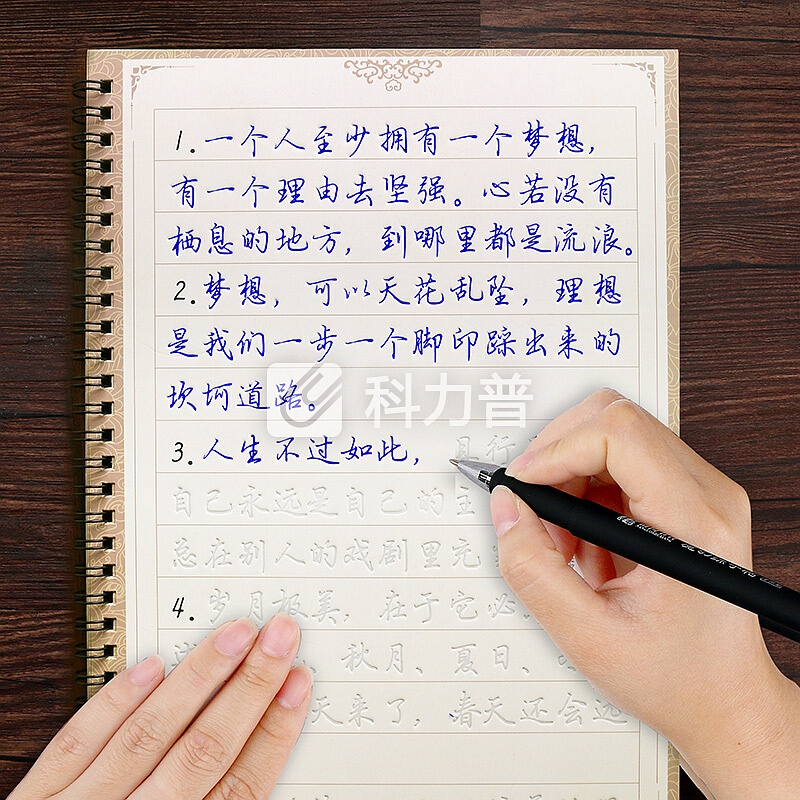 1.一个人至少拥有一个梦想，
有一个理由去坚强。心若没有
栖息的地方，到哪里都是流浪。
2.梦想，可以天花乱坠，理想
是我们一步一个脚印踩出来的
坎坷道路。
科力普
3.人生不过如此，且行
自己永远是自己的主
总在别人的戏剧里充
4.岁月极美，在于它必
、秋月、夏日、
天来了，春天还会远